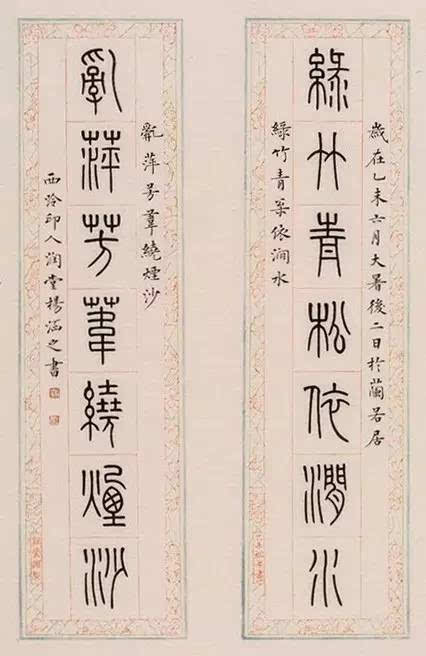 歲在乙未六月大暑後二日於蘭若居
綠竹青松依澗水
綠竹青松依澗水
亂萍芳葦繞煙沙
亂萍芳葦繞煙沙
西泠印人潤堂楊涵之書